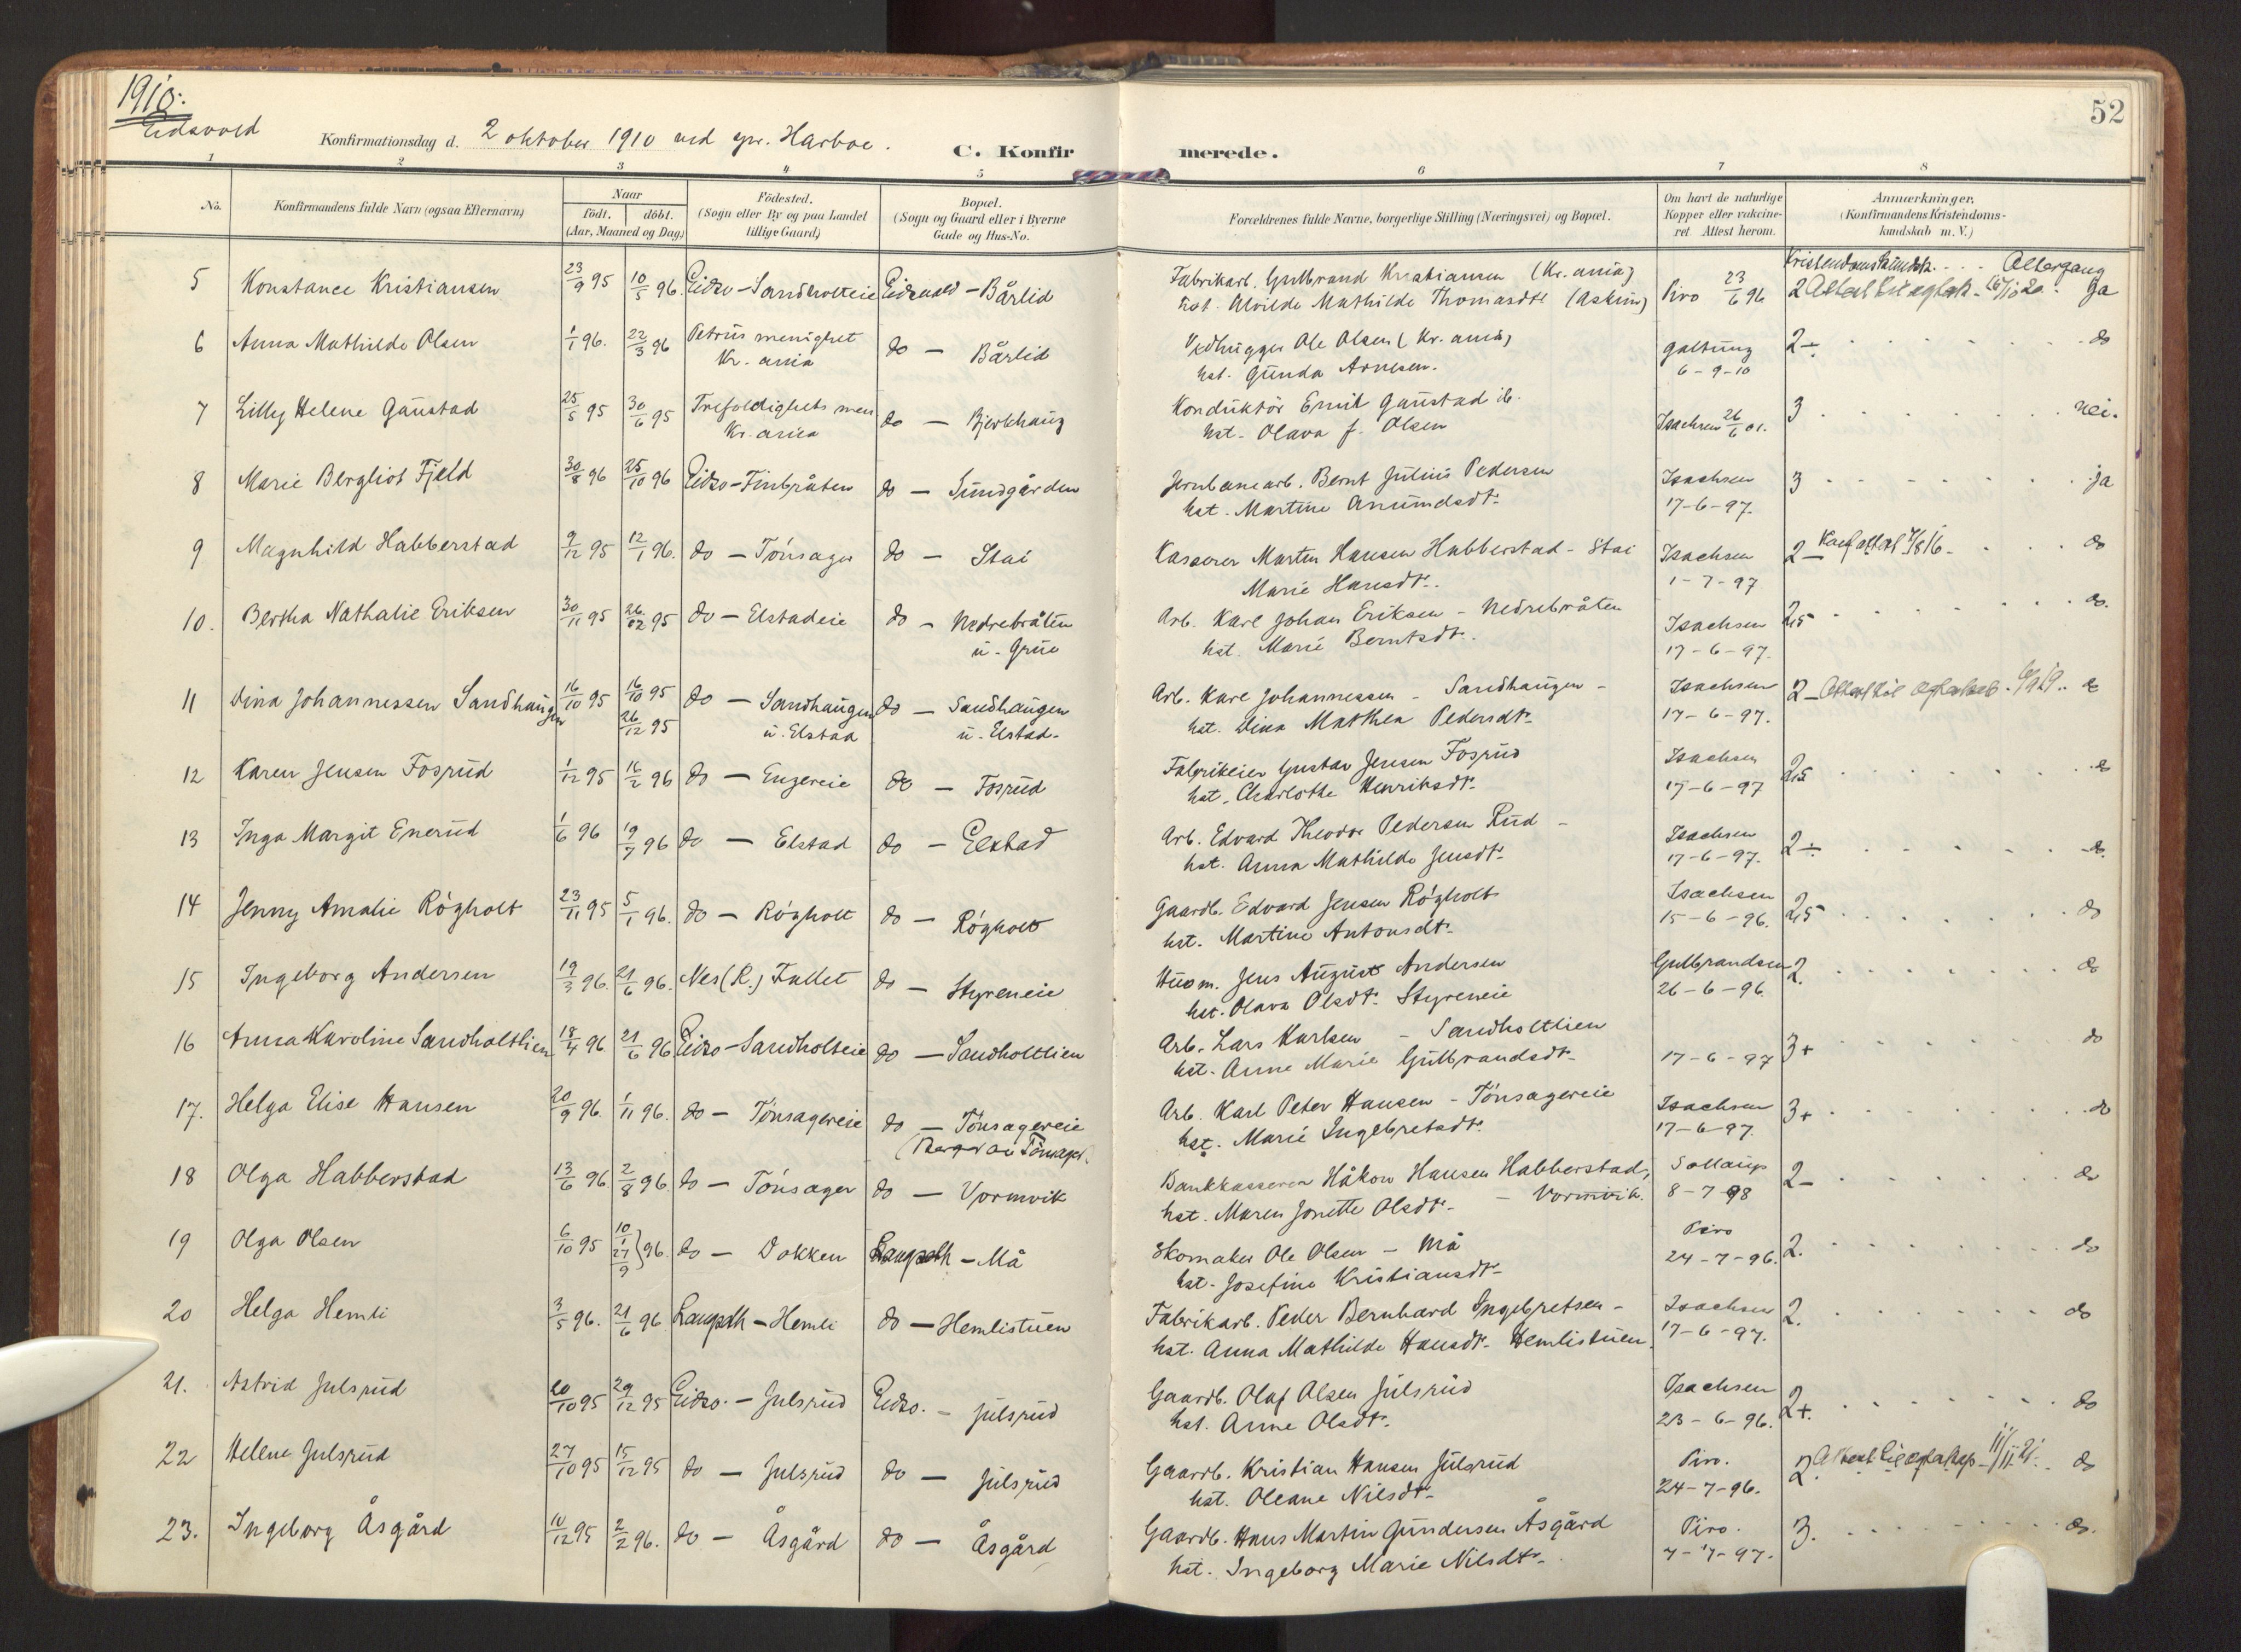 1910.
Eidsvold
52
Konfirmationsdag d. 2 oktober 1910 ved spr. Harboe.
C. Konfirmerede.
1 2 3 4 5 6 7 8
No.
Konfirmandens fulde Navn (ogsaa Efternavn)
Naar
födt. döbt.
(Aar, Maaned og Dag)
Födested.
(Sogn eller By og paa Landet
tillige Gaard)
Bopæl.
(Sogn og Gaard eller i Byerne
Gade og Hus-No.
Forældrenes fulde Navne, borgerlige Stilling (Næringsvei) og Bopæl.
Om havt de naturlige
Kopper eller vakcine-
ret. Attest herom.
Anmærkninger.
(Konfirmandens Kristendoms-
kundskab m. V.)
Kristendomskundsk. Altergang
5 Konstance Kristiansen 23/9 95 10/5 96. Eidsv - Sandholteie Eidsvold - Bårlid
Fabrikarb. Gulbrand Kristiansen (Kr.ania)
hst. Alvilde Mathilde Thomasdtr (Askim) Piro 23/6 96 2 ja
6 Anna Mathilde Olsen 1/1 96. 22/3 96 Petrus menighet
Kr. ania do - Bårlid
Vedhugger Ole Olsen (Kr. ania)
hst. Gunda Arnesen. Galtung
6-9-10 2÷ do
7 Lilly Helene Gaustad 25/5 95 30/6 95 Trefoldighets men
Kr. ania do - Bjerkhaug
Konduktör Emil Gaustad ib.
hst. Olava f. Olsen Isachsen 26/6 01. 3 nei.
8 Marie Bergliot Fjeld 30/8 96 25/10 96 Eidsv - Finbråten do - Sundgården
Jernbanearb. Bernt Julius Pedersen
hst. Martine Anumdsdtr. Isachsen
17-6-97. 3 ja
9 Magnhild Habberstad 9/12 95 12/1 96. do - Tönsager do - Stai
Kasserer Martin Hansen Habberstad - Stai
Marie Hansdtr. Isachsen
1-7-97 2- do
10. Bertha Nathalie Eriksen 30/11 95 26/12 95 do - Elstadeie do - Nedrebråten
u. Grue
Arb. Karl Johan Eriksen - Nedrebråten
hst. Marie Berntsdtr. Isachsen
17-6-97. 2,5 do.
11 Dina Johannessen Sandhaugen 16/10 95 16/10 95
26/12 95 do - Sandhaugen
u. Elstad do - Sandhaugen
u. Elstad.
Arb. Karl Johannessen - Sandhaugen -
hst. Dina Mathea Pedersdtr. Isachsen
17-6-97. 2- do
12 Karen Jensen Fosrud 1/12 95 16/2 96 do - Engereie do - Fosrud
Fabrikeier Gustav Jensen Fosrud
hst. Charlotte Henriksdtr. Isachsen
17-6-97 2,5 do
13 Inga Margit Enerud 1/6 96 19/7 96 do - Elstad do - Elstad
Arb. Edvard Theodor Pedersen Rud -
hst. Anna Mathilde Jensdtr. Isachsen
17-6-97. 2÷ do.
14 Jenny Amalie Rögholt 23/11 95 5/1 96. do - Rögholt do - Rögholt
Gaardb. Edvard Jensen Rögholt
hst. Martine Antonsdtr. Isachsen
15-6-96. 2,5 do
15 Ingeborg Andersen 19/3 96. 21/6 96. Nes (R.) Fallet do - Styreneie
Husm. Jens August Andersen
hst. Olava Olsdtr. Styreneie Gulbrandsen
26-6-96. 2. do
16 Anna Karoline Sandholtlien 18/4 96 21/6 96 Eidsv - Sandholteie do - Sandholtlien
Arb. Lars Karlsen - Sandholtlien
hst. Anne Marie Gulbrandsdtr. 17-6-97 3+ do
17. Helga Elise Hansen 20/9 96. 1/11 96. do - Tönsagereie do - Tönsagereie
Arb. Karl Peter Hansen - Tönsagereie
hst. Marie Ingebretsdtr. Isachsen
17-6-97. 3+ do
18 Olga Habberstad 13/6 96 2/8 96. do - Tönsager do - Vormvik
Bankkasserer Håkon Hansen Habberstad,
hst. Maren Jonette Olsdtr. - Vormvik. 8-7-98 2- do
19 Olga Olsen 6/10 95 10/1 27/9 } 96. do - Dokken Langseth - Må
Skomaker Ole Olsen - Må
hst. Josefine Kristiansdtr. Piro
24-7-96. 2. do
20 Helga Hemli 3/5 96. 21/6 96 Langseth - Hemli do - Hemlistuen
Fabrikarb. Peder Bernhard Ingebretsen -
hst. Anna Mathilde Hansdtr. Hemlistuen. Isachsen
17-6-97. 2. do
21. Astrid Julsrud 20/10 95 29/12 95 Eidsv. - Julsrud Eidsv. - Julsrud
Gaardb. Olaf Olsen Julsrud
hst. Anne Olsdtr. Isachsen
23-6-96. 2+. do
22 Helene Julsrud 27/10 95 15/12 95 do - Julsrud do - Julsrud
Gaardb. Kristian Hansen Julsrud
hst. Oleane Nilsdtr. Piro.
24-7-96. 2 do
23. Ingeborg Åsgård 10/12 95 2/2 96. do - Åsgård do - Åsgård
Gaardb. Hans Martin Gundersen Åsgård
hst. Ingeborg Marie Nilsdtr. Piro.
7-7-97. 3. do.